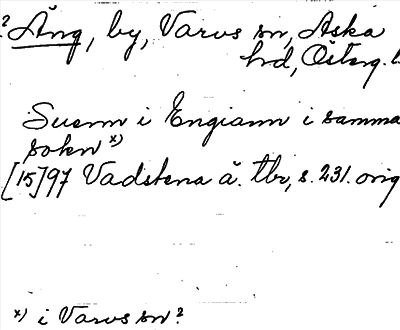 ? Äng, by, Varvs sn, Aska
hd, Österg. l.
Suenn i Engiann i samma
sokn x)
[15]97 Vadstena ä. tbr, s. 231. orig
x) i Varvs sn?